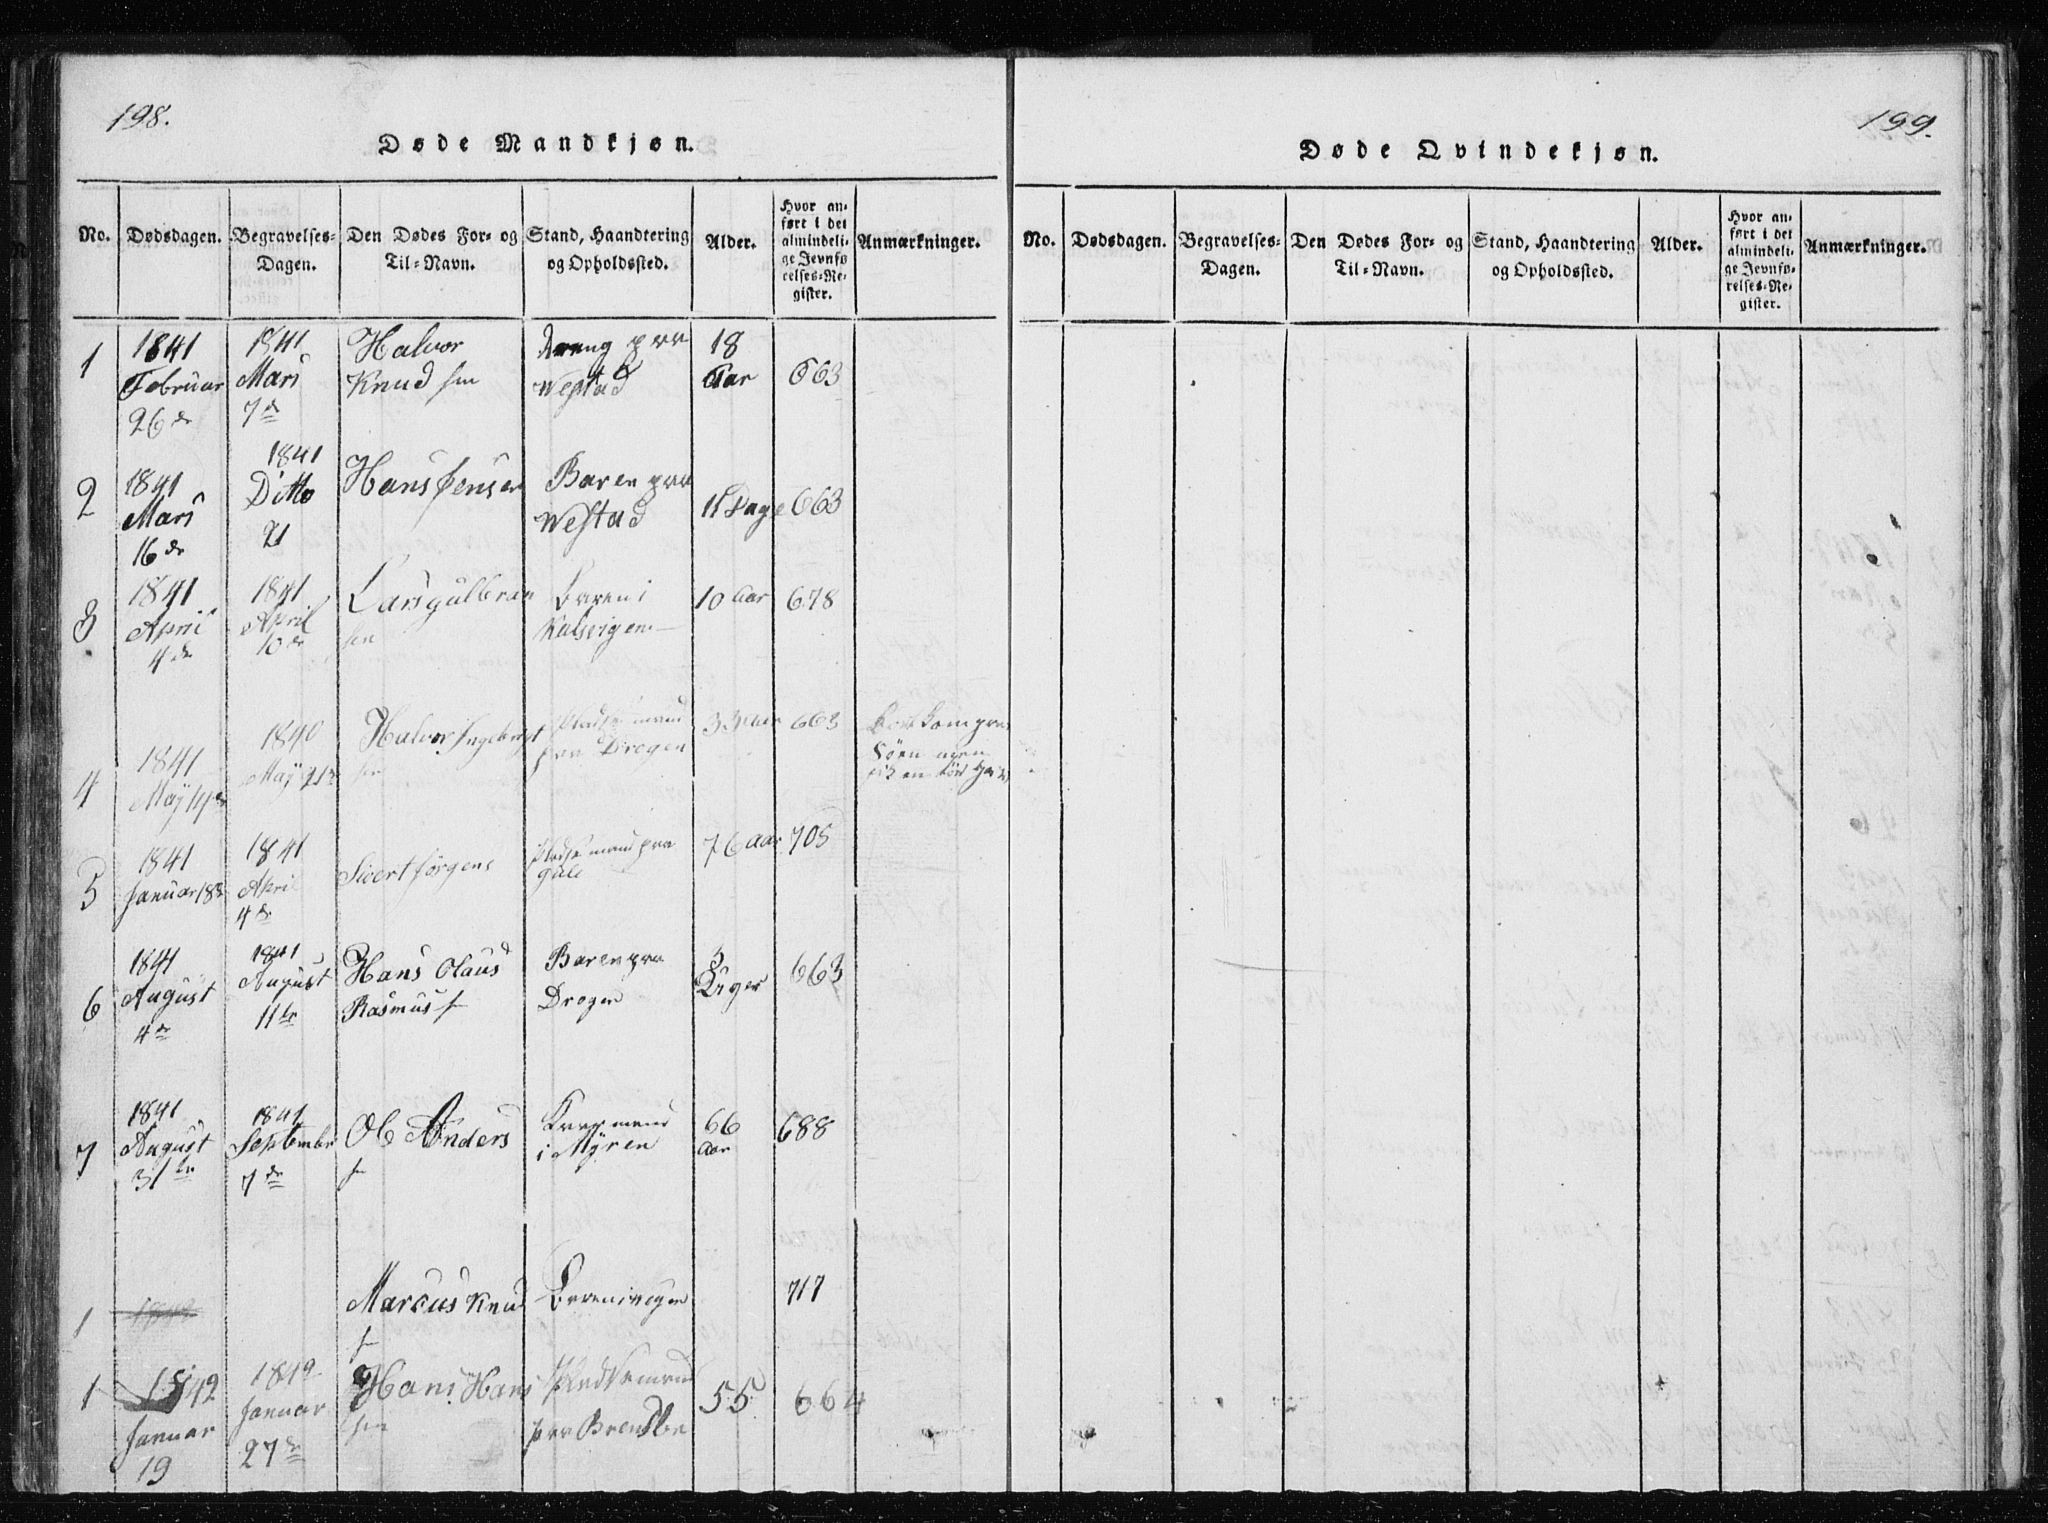 198.
Døde Mandkjøn.
No.
Dødsdagen.
Begravelses-
Dagen.
Den Dødes For- og
Til-Navn.
Stand, Haandtering
og Opholdssted.
Alder.
Hvor an-
ført i det
almindeli-
ge Jevnfø-
relses-Re-
gister.
Anmærkninger.
1
1841
Februar
26 de
1841
Mars
7 de
Halvor
Knud sen
dreng paa
Westad
18
Aar
663
2
1841
Mars
16 de
1841
Ditto
21
Hans Jensen
Baren paa
Westad
11 Dage
663
3
1841
April
4 de
1841
April
10 de
Lars gulbran
sen
Baren i
Kalvigen
10 Aar
678
4
1841
May 14 de
1840
May 21 de
Halvor Ingebregt
sen
Pladsemand
paa Drogen
33 Aar
663
Bortkom paa
Søen men
5
1841
Januar 18 de
1841
April
4 de
Sivert Jørgens
Pladsemand paa
gule
76 Aar
705
6
1841
August
4 de
1841
August
11 te
Hans Olaus
Rasmus s
Baren paa
Drogen
3
Uger
663
7
1841
August
31 te
1841
September
7 de
Ole Anders
s
mand
i Myren
66
Aar
688
1
Marcus Knud
s
717
1
1842
Januar
19
1842
Januar
27 de
Hans Hans
sen
Pladsemand
paa
55
664
199.
Døde Qvindekjøn.
No.
Dødsdagen.
Begravelses-
Dagen.
Den Dødes For- og
Til-Navn.
Stand, Haandtering
og Opholdssted.
Alder.
Hvor an-
ført i det
almindeli-
ge Jevnfø-
relses-Re-
gister.
Anmærkninger.